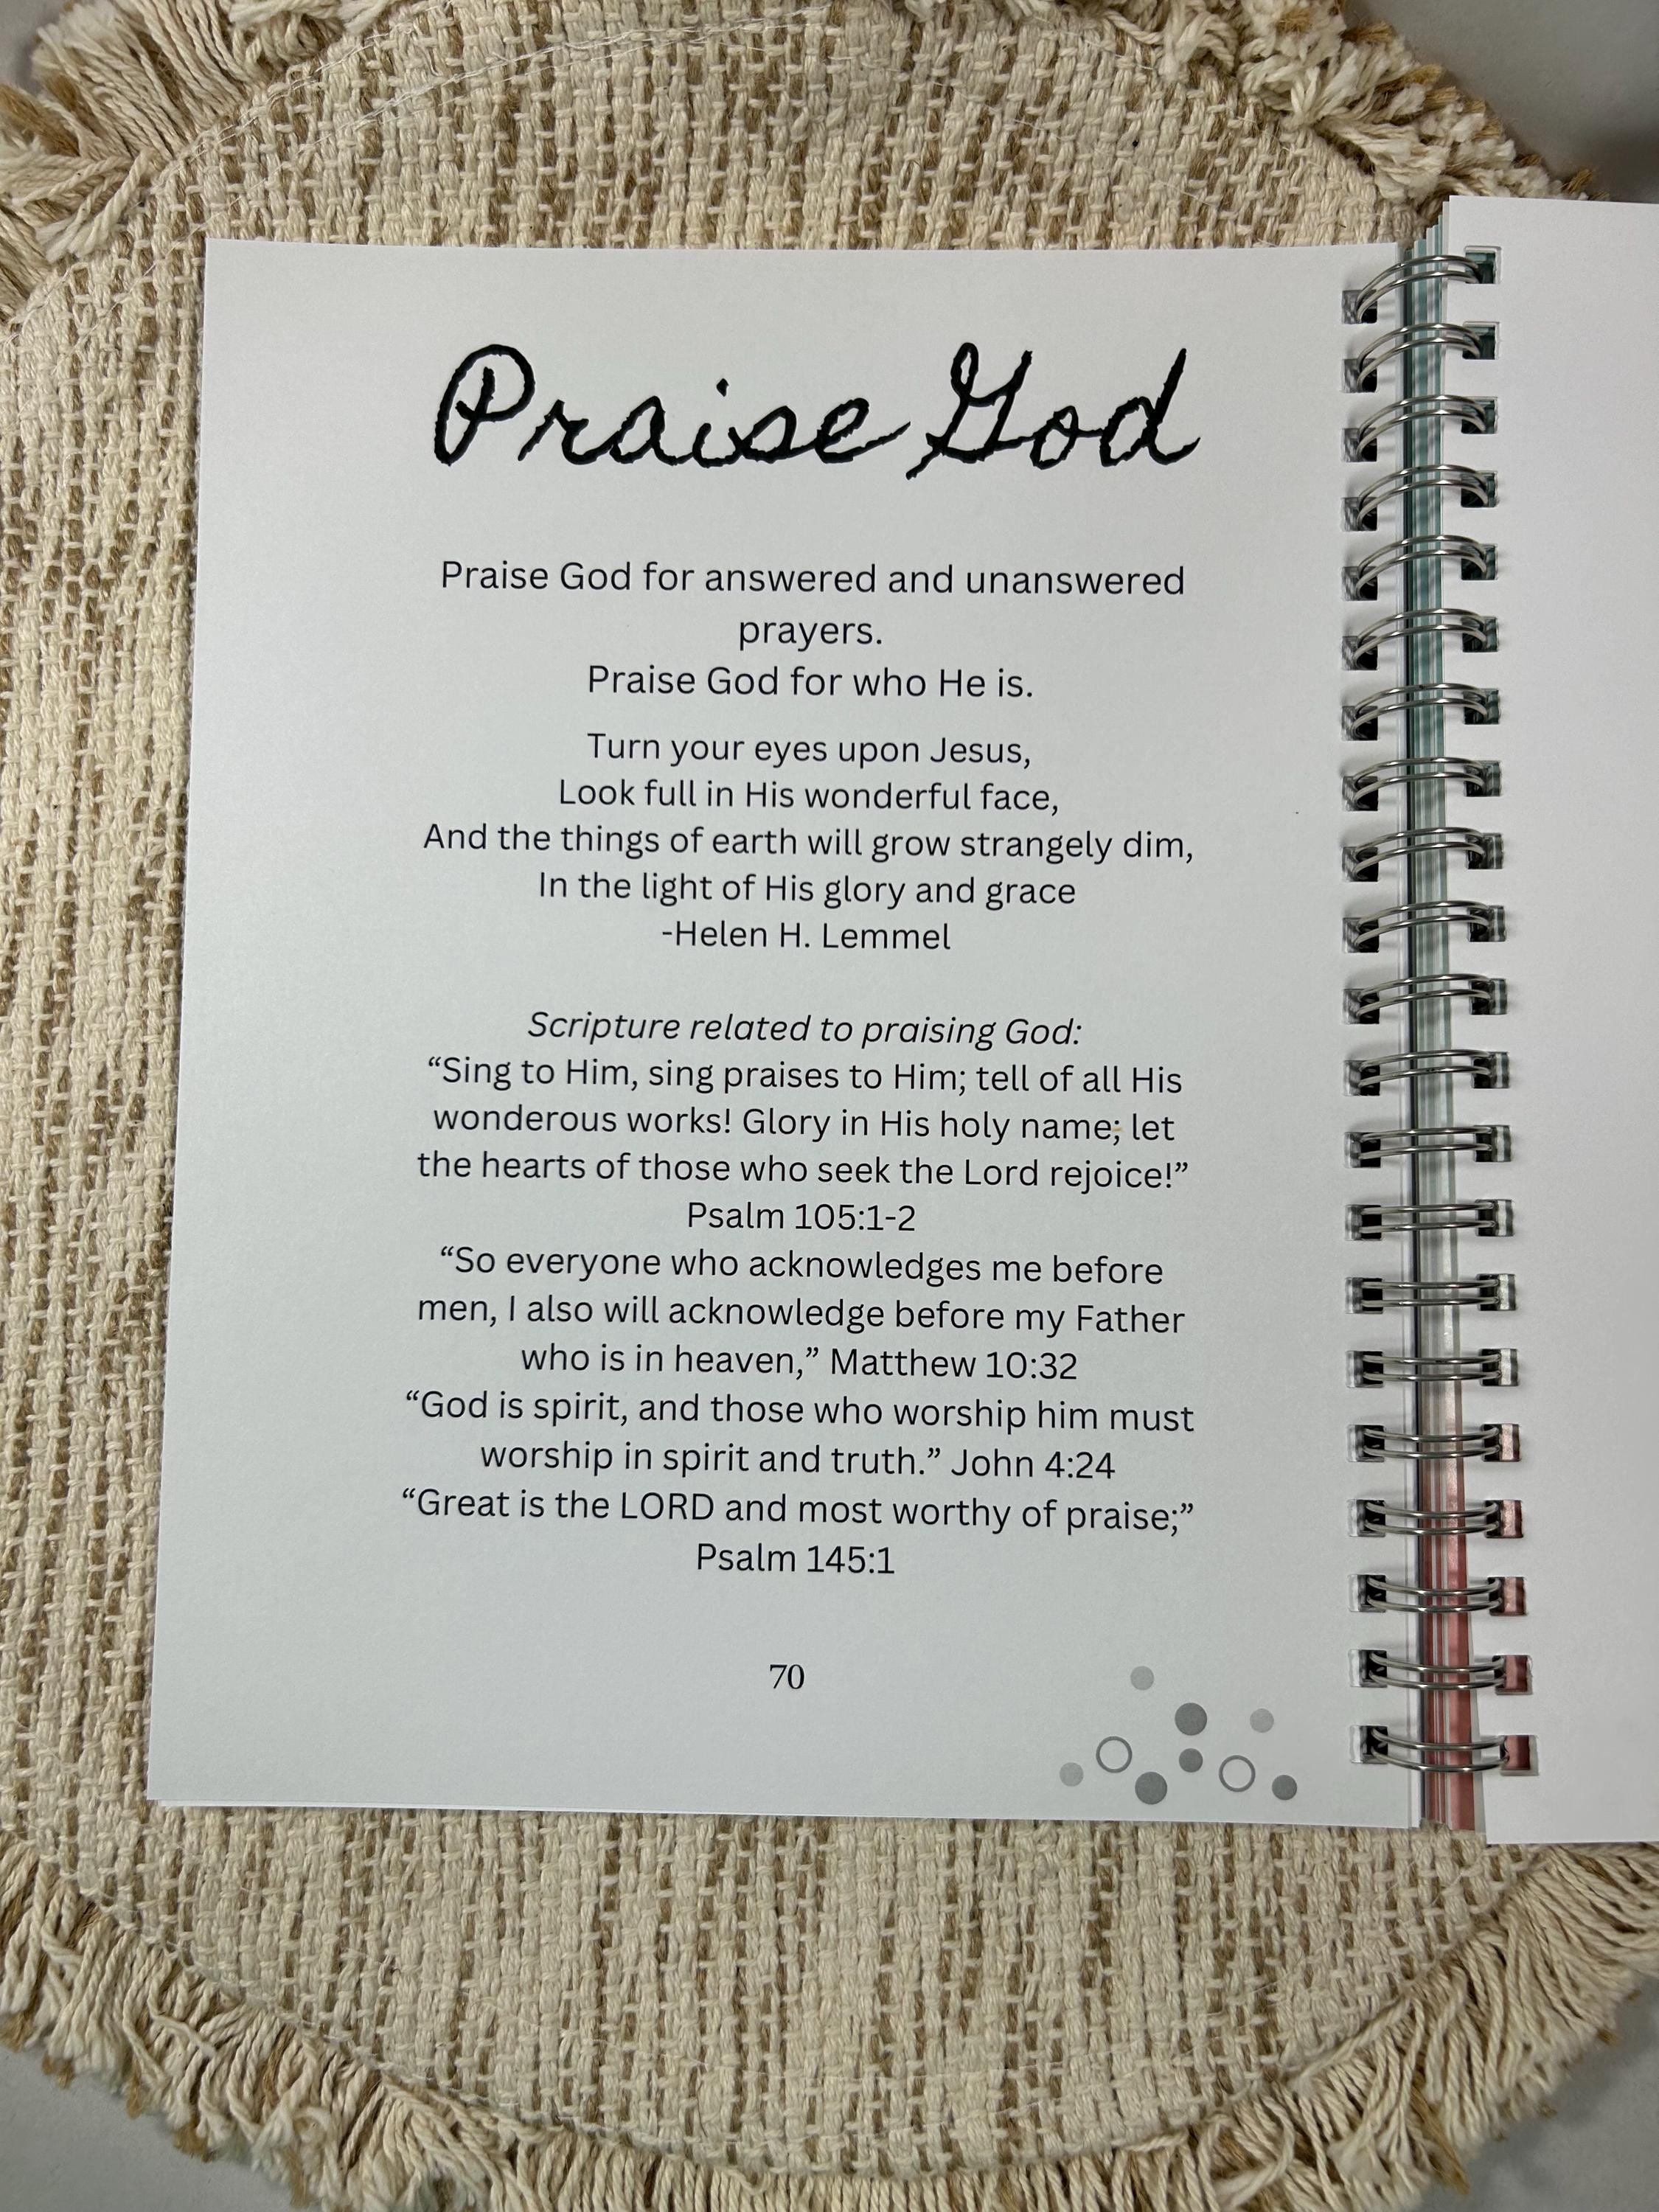 Praise God
Praise God for answered and unanswered
prayers.
Praise God for who He is.
Turn your eyes upon Jesus,
Look full in His wonderful face,
And the things of earth will grow strangely dim,
In the light of His glory and grace
-Helen H. Lemmel
Scripture related to praising God:
“Sing to Him, sing praises to Him; tell of all His
wonderous works! Glory in His holy name; let
the hearts of those who seek the Lord rejoice!”
Psalm 105:1-2
“So everyone who acknowledges me before
men, I also will acknowledge before my Father
who is in heaven,” Matthew 10:32
“God is spirit, and those who worship him must
worship in spirit and truth.” John 4:24
“Great is the LORD and most worthy of praise;”
Psalm 145:1
70